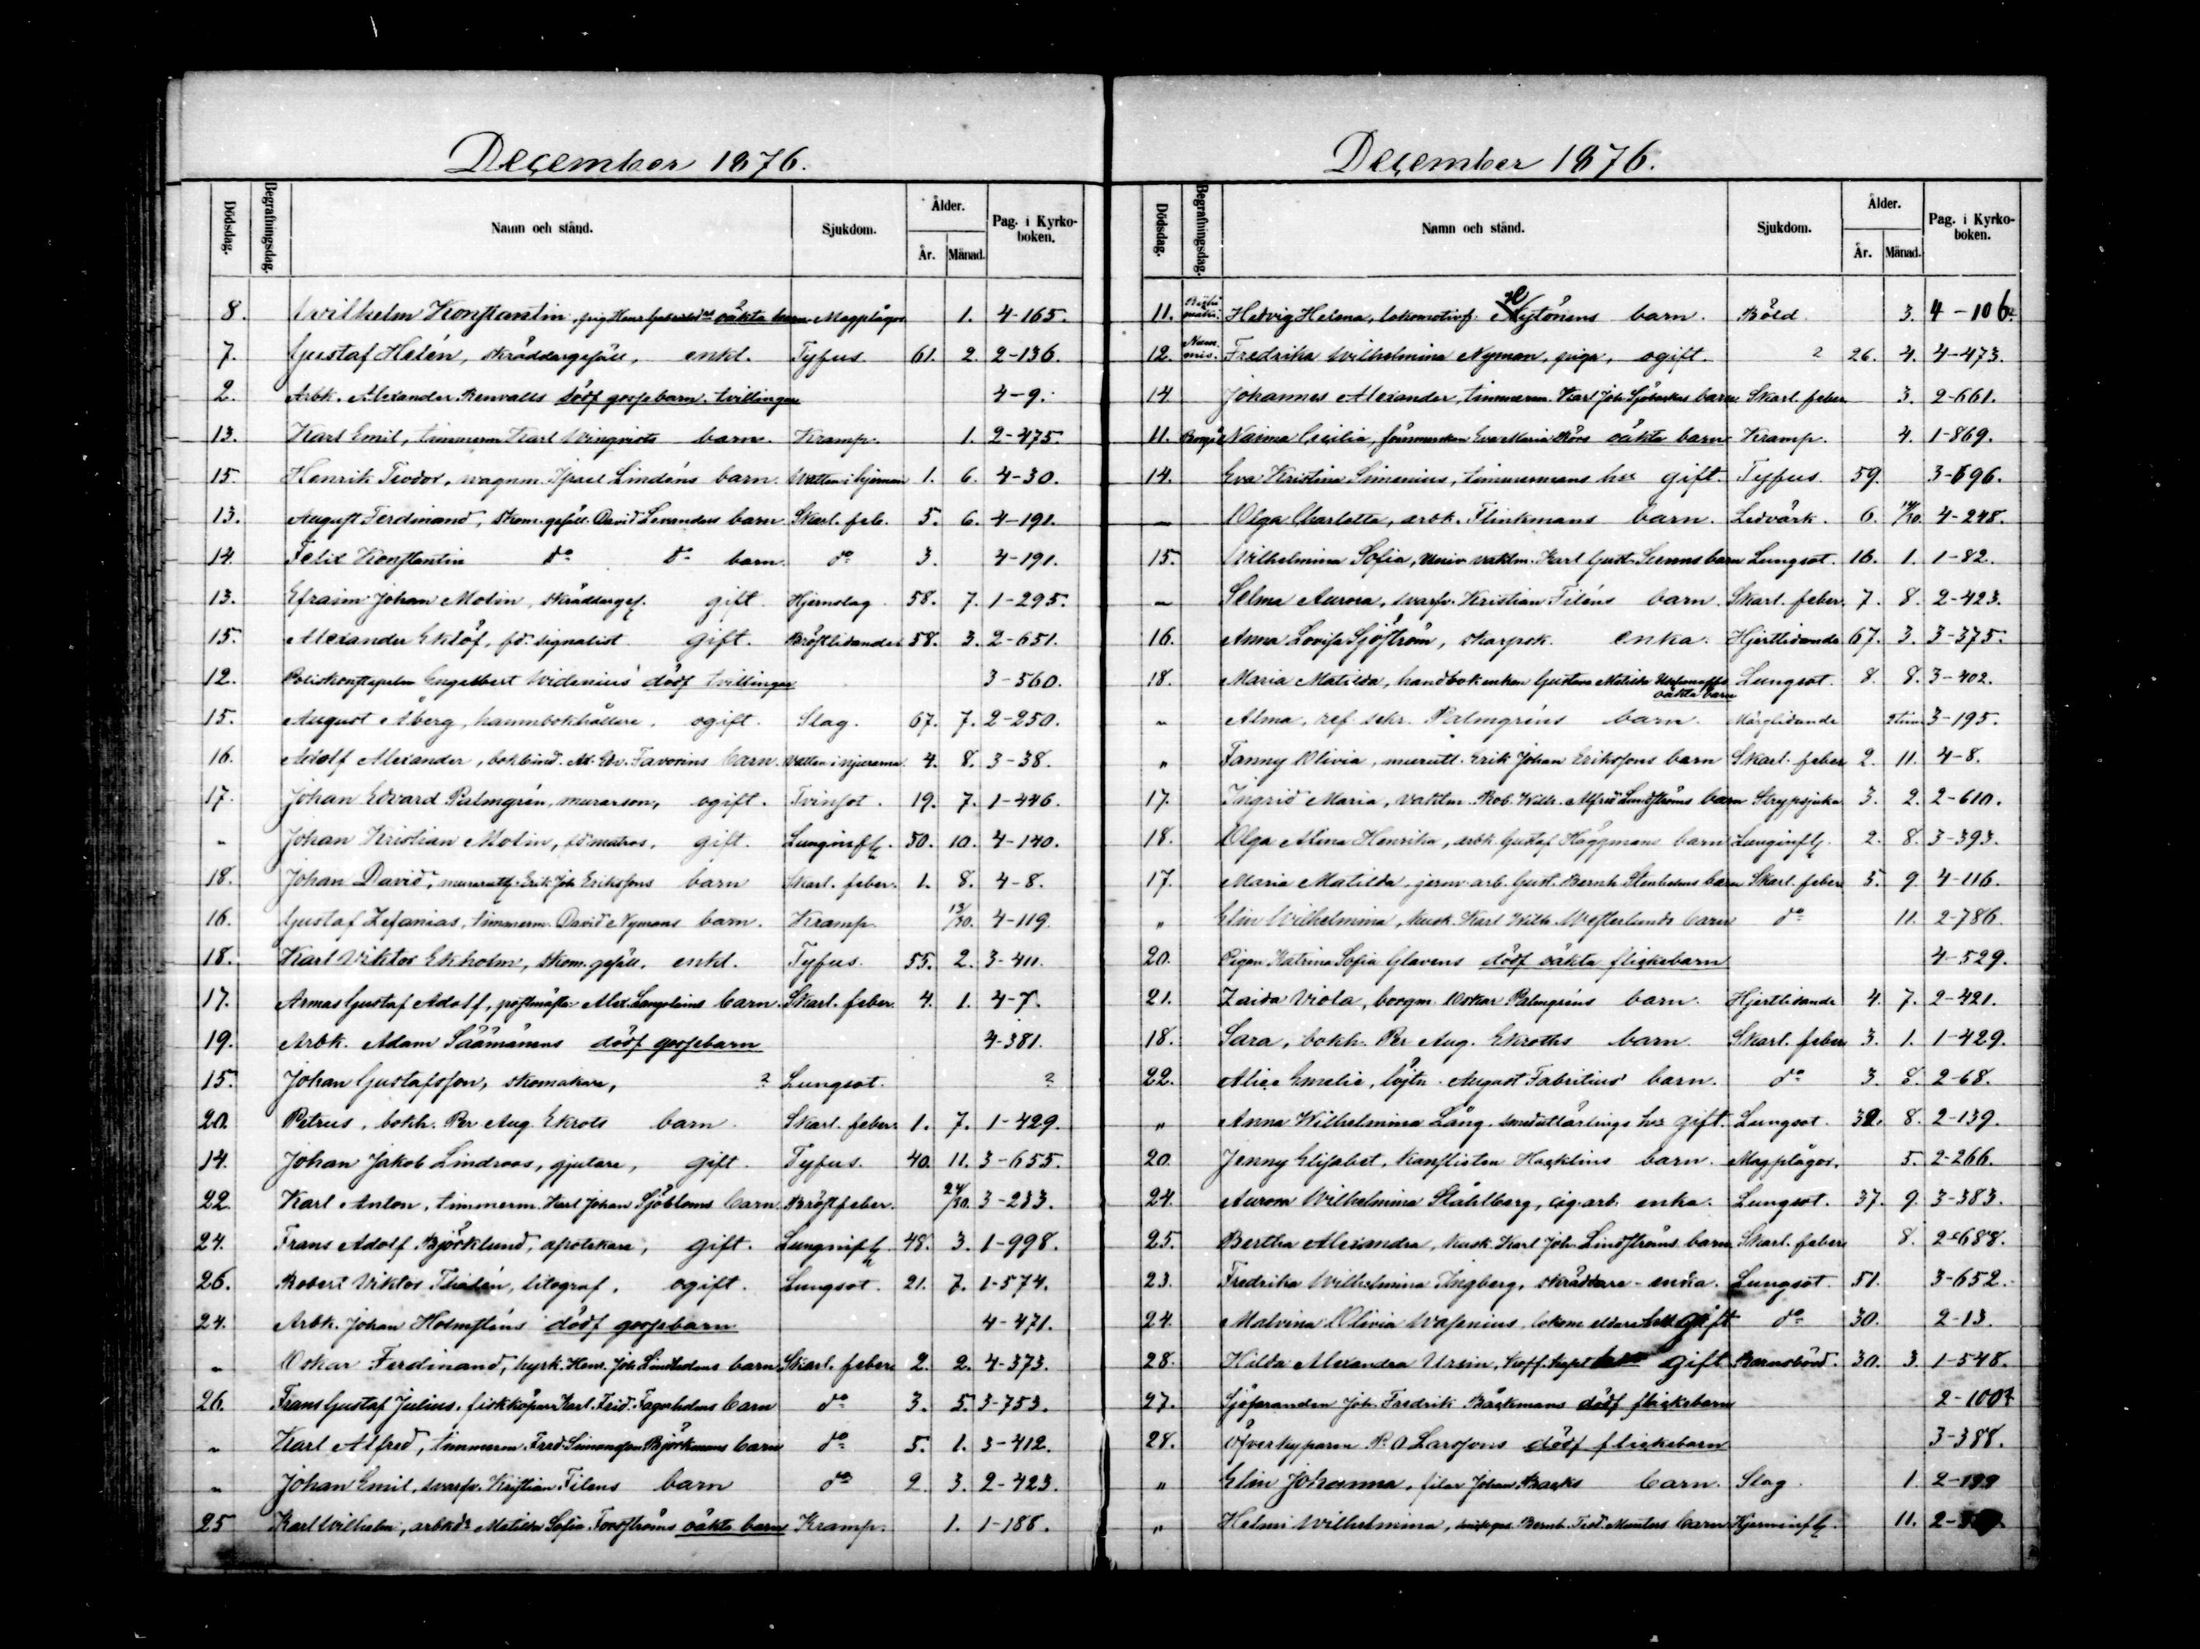 December 1876.
Dödsdag. Begrafningsdag. Namn och stånd. Sjukdom. Ålder. År. Månad. Pag. i Kyrkoboken.
8. Wilhelm Konstantin, oäkta barn Magplågor 1. 4-165.
7. Gustaf Helén, skräddaregesäll, enkl. Tyfus. 61. 2. 2-136.
2. Arbk. Alexander Renvalls dödf gossebarn. tvillingar 4-9.
13. Karl Emil, timmerm Karl Winqvists barn. Kramp. 1. 2-475.
15. Henrik Teodor, vagnm. Israel Lindéns barn. Vatten i hjernan 1. 6. 4-30.
13. August Ferdinand, skom.gesäll. David Levanders barn Skarl. feb. 5. 6. 4-191.
14. Felix Konstantin do do barn. do 3. 4-191.
13. Efraim Johan Molin, skräddargef. gift. Hjernslag. 58. 7. 1-295.
15. Alexander Eklöf, fd. signalist gift. Bröstlidande 58. 3. 2-651.
12. Poliskonstapeln Engelbert Widenius' dödf tvillingar 3-560.
15. August Åberg, hamnbokhållare, ogift. Slag. 67. 7. 2-250.
16. Adolf Alexander, bokbind. Ad. Edv. Favorins barn. Vatten i njurarna 4. 8. 3-38.
17. Johan Edvard Palmgrén, murarson, ogift. Tvinsot. 19. 7. 1-446.
" Johan Kristian Molin, fd matros, gift. Lunginfl. 50. 10. 4-140.
18. Johan David, murarutl. Erik Joh. Erikssons barn Skarl. feber. 1. 8. 4-8.
16. Gustaf Zefanias, timmerm. David Nymans barn. Kramp. 13/30. 4-119.
18. Karl Viktor Ekholm, skom.gesäll, enkl. Tyfus. 55. 2. 3-411.
17. Armas Gustaf Adolf, postmäst. Alex. barn. Skarl. feber. 4. 1. 4-7.
19. Arbk. Adam Säämänens dödf gossebarn 4-381.
15. Johan Gustafsson, skomakare, ? Lungsot. ?
20. Petrus, bokh. Per Aug. Ekrots barn Skarl. feber. 1. 7. 1-429.
14. Johan Jakob Lindroos, gjutare, gift. Tyfus. 40. 11. 3-655.
22. Karl Anton, timmerm. Karl Johan Sjöbloms barn. Bröstfeber. 24/30. 3-233.
24. Frans Adolf Björklund, apotekare, gift. Lunginfl. 48. 3. 1-998.
26. Robert Viktor litograf, ogift. Lungsot. 21. 7. 1-574.
24. Arbk. Johan Holmsténs dödf gossebarn 4-471.
" Oskar Ferdinand, hyrk. Henr. Joh. Lindholms barn Skarl. feber 2. 2. 4-373.
26. Frans Gustaf Julius, fiskköpare Karl Frid. Fagerholms barn do 3. 5. 3-753.
" Karl Alfred, timmerm. Fred. Simonsson Björkmans barn do 5. 1. 3-412.
" Johan Emil, svarfv. Kristian Tilens barn do 2. 3. 2-423.
25 Karl Wilhelm, Matilda Sofia Forsströms oäkta barn Kramp. 1. 1-188.
December 1876.
Dödsdag. Begrafningsdag. Namn och stånd. Sjukdom. Ålder. År. Månad. Pag. i Kyrkoboken.
11. Hedvig Helena, lokomotivf. barn. Böld. 3. 4-106
12. Nummis. Fredrika Wilhelmina Nyman, piga, ogift. ? 26. 4. 4-473.
14 Johannes Alexander, timmerm. Karl Joh. barn. Skarl. feber 3. 2-661.
11. Borgå Naima Cecilia, Eva Maria oäkta barn Kramp. 4. 1-869.
14. Eva Kristina Simenius, timmermans hu gift. Tyfus. 59. 3-696.
— Olga Charlotta, arbk. Flinkmans barn. Ledvärk. 6. 14/30. 4-248.
15. Wilhelmina Sofia, Univ. vaktm. Karl Gust. barn Lungsot. 16. 1. 1-82.
" Selma Aurora, svarfv. Kristian Tiléns barn. Skarl. feber. 7. 8. 2-423.
16. Anna Lovisa Sjöström, skarpsk. enka. Hjertlidande 67. 3. 3-375.
18. Maria Matilda, handbokenkan Gustava Matilda oäkta barn Lungsot. 8. 8. 3-402.
" Alma, ref. sekr. Palmgréns barn. Märglidande 2 tim 3-195.
" Fanny Olivia, murutl. Erik Johan Erikssons barn Skarl. feber 2. 11. 4-8.
17. Ingrid Maria, vaktm. Rob. Wilh. Alfred Lundströms barn Strypsjuka 3. 2. 2-610.
18. Olga Alina Henrika, arbk. Gustaf Häggmans barn Lunginfl. 2. 8. 3-393.
17. Maria Matilda, jernv. arb. Gust. Bernh. Stenholms barn Skarl. feber 5. 9. 4-116.
" Elin Wilhelmina, kusk. Karl Wilh. Westerlunds barn do 11. 2-786.
20. Pigan Katrina Sofia Glavens dödf oäkta flickebarn 4-529.
21. Zaida Viola, borgm. Oskar Palmgréns barn. Hjertlidande 4. 7. 2-421.
18. Sara, bokh. Per Aug. Ekroths barn. Skarl. feber 3. 1. 1-429.
22. Alice Emelie, löjtn. August Fabritius' barn. do 3. 8. 2-68.
" Anna Wilhelmina Lång. hu gift. Lungsot. 32. 8. 2-139.
20. Jenny Elisabet, kanslisten Hacklins barn. Magplågor. 5. 2-266.
24. Aurora Wilhelmina Ståhlberg, cig. arb. enka. Lungsot. 37. 9. 3-383.
25. Bertha Alexandra, kusk. Karl Joh. Lindströms barn. Skarl. feber 8. 2-688.
23. Fredrika Wilhelmina Ingberg, skräddare-enka. Lungsot. 51. 3-652.
24. Malvina Olivia Wasenius, lokom. eldare gift do 30. 2-13.
28. Hilda Alexandra Ursin, gift Barnsbörd. 30. 3. 1-548.
27. Sjöfaranden Joh. Fredrik Bäckmans dödf flickebarn 2-1002
28. Öfverkyparen R. O. Larssons dödf flickebarn 3-388.
" Elin Johanna, filar Johan Backs barn. Slag. 1. 2-199
" Helmi Wilhelmina, Bernh. Fred. barn Hjerninfl. 11.